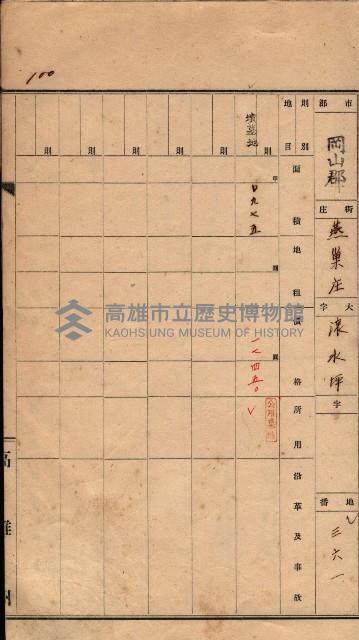 100
市郡
岡山郡
街庄
燕巢庄
大字
滾水坪
字
地番
三六一
則別
地目
面積
地租
價格
所用
沿革及事故
則
墳墓地
甲
〇九七五
圓
圓
一七四五〇
公用墓地
則
則
則
則
則
則
高雄州
高雄市立歷史博物館
KAOHSIUNG MUSEUM OF HISTORY